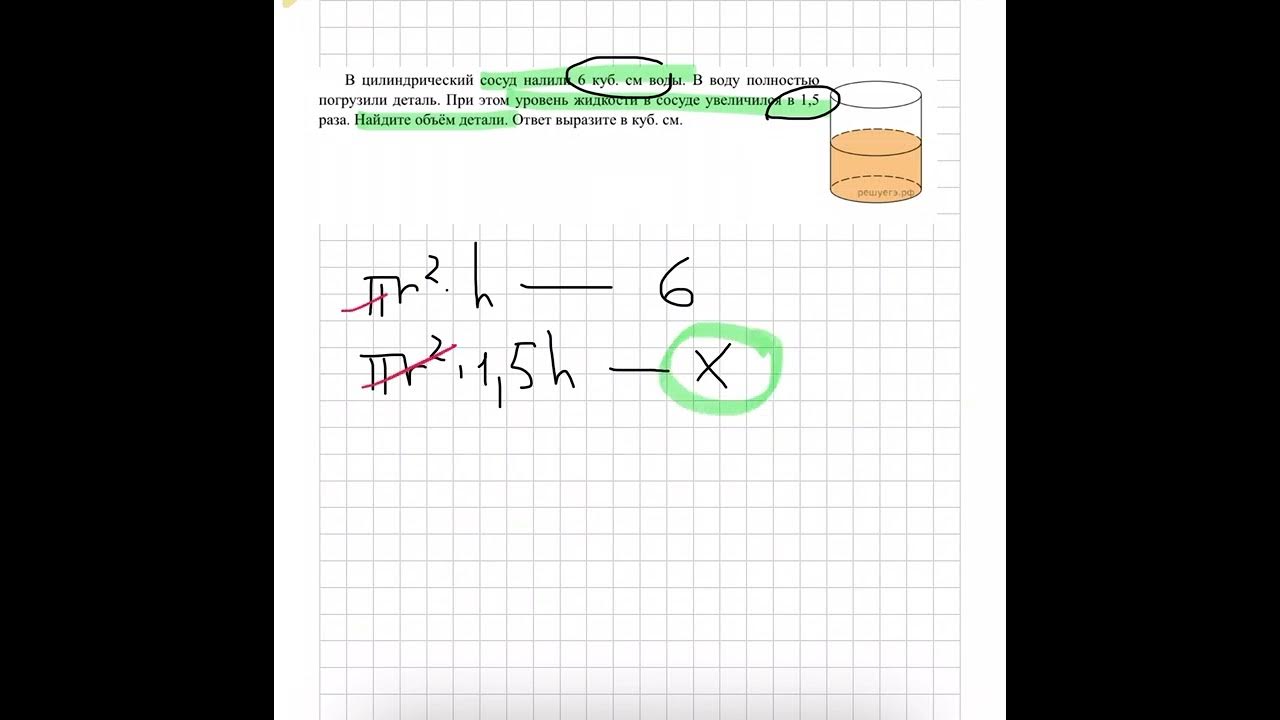 В цилиндрический сосуд налили 6 куб. см воды. В воду полностью
погрузили деталь. При этом уровень жидкости в сосуде увеличился в 1,5
раза. Найдите объём детали. Ответ выразите в куб. см.
решуегэ.рф
πr². h — 6
πr² · 1,5h — x